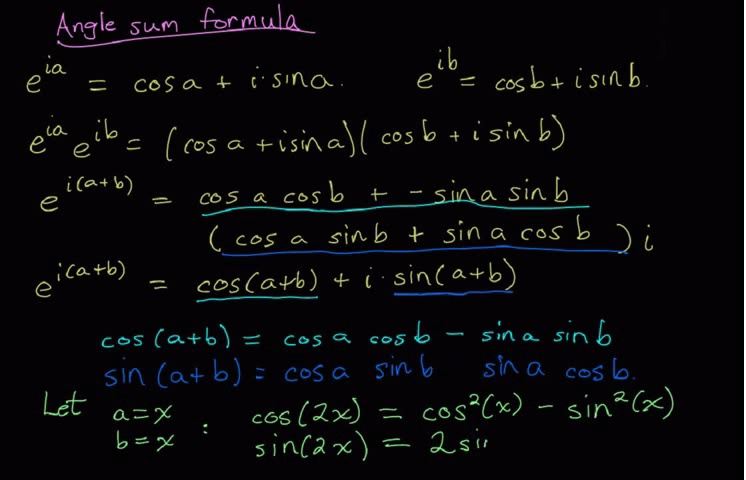 Angle sum formula
e^{ia} = cos a + i·sin a. e^{ib} = cos b + i sin b.
e^{ia} e^{ib} = (cos a + i sin a)(cos b + i sin b)
e^{i(a+b)} = cos a cos b + - sin a sin b
(cos a sin b + sin a cos b) i
e^{i(a+b)} = cos(a+b) + i · sin(a+b)
cos (a+b) = cos a cos b - sin a sin b
sin (a+b) = cos a sin b sin a cos b.
Let a=x : cos(2x) = cos²(x) - sin²(x)
b=x sin(2x) = 2 si